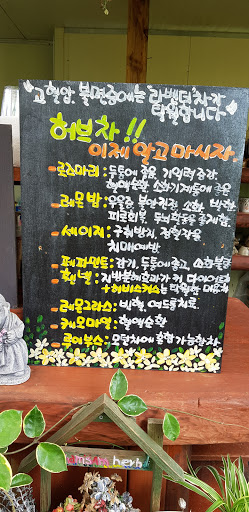 고혈압, 불면증에는 라벤더차가
탁월합니다
허브차!!
이제 알고 마시자
로즈마리 : 두통에 좋음, 기억력 증강,
혈액순환, 소화기계통에 좋은
레몬밤 : 우울증, 불안진정, 소화, 변비,
피로회복, 두뇌활동을 높게함.
세이지 : 구취방지, 정혈작용
치매예방
페퍼민트 : 감기, 두통에 좋고, 소화불량
휀넬 : 지방분해효과가 커 다이어트
+ 히비스커스는 탁월한 매료차
레몬그라스 : 빈혈, 여드름치료
캐모마일 : 혈액순환
루이보스 : 모탈차에 혼합가능한차
herb